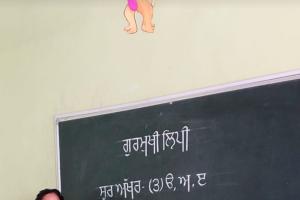 ਗੁਰਮੁਖੀ ਲਿਪੀ
ਸੁਰ ਅੱਖਰ- (3) ੳ, ਅ, ੲ